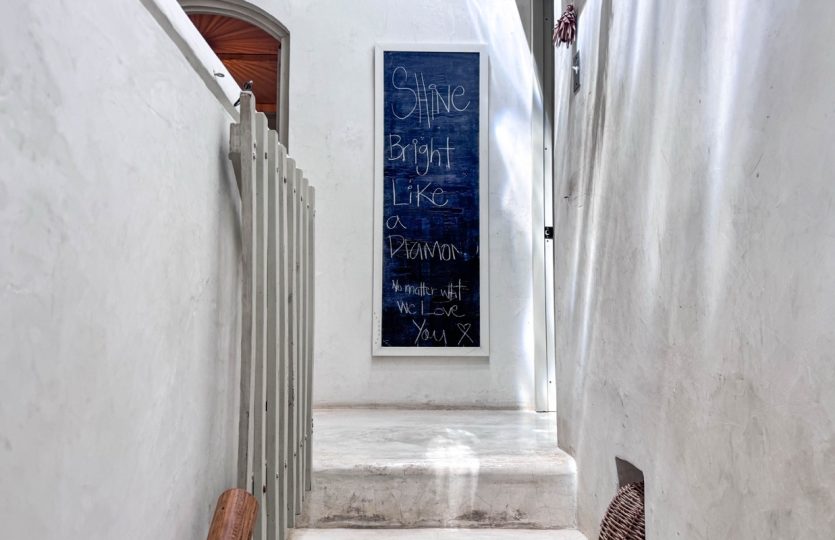 SHiNe
Bright
LiKe
a
DIAMON
No matter what
We Love
You